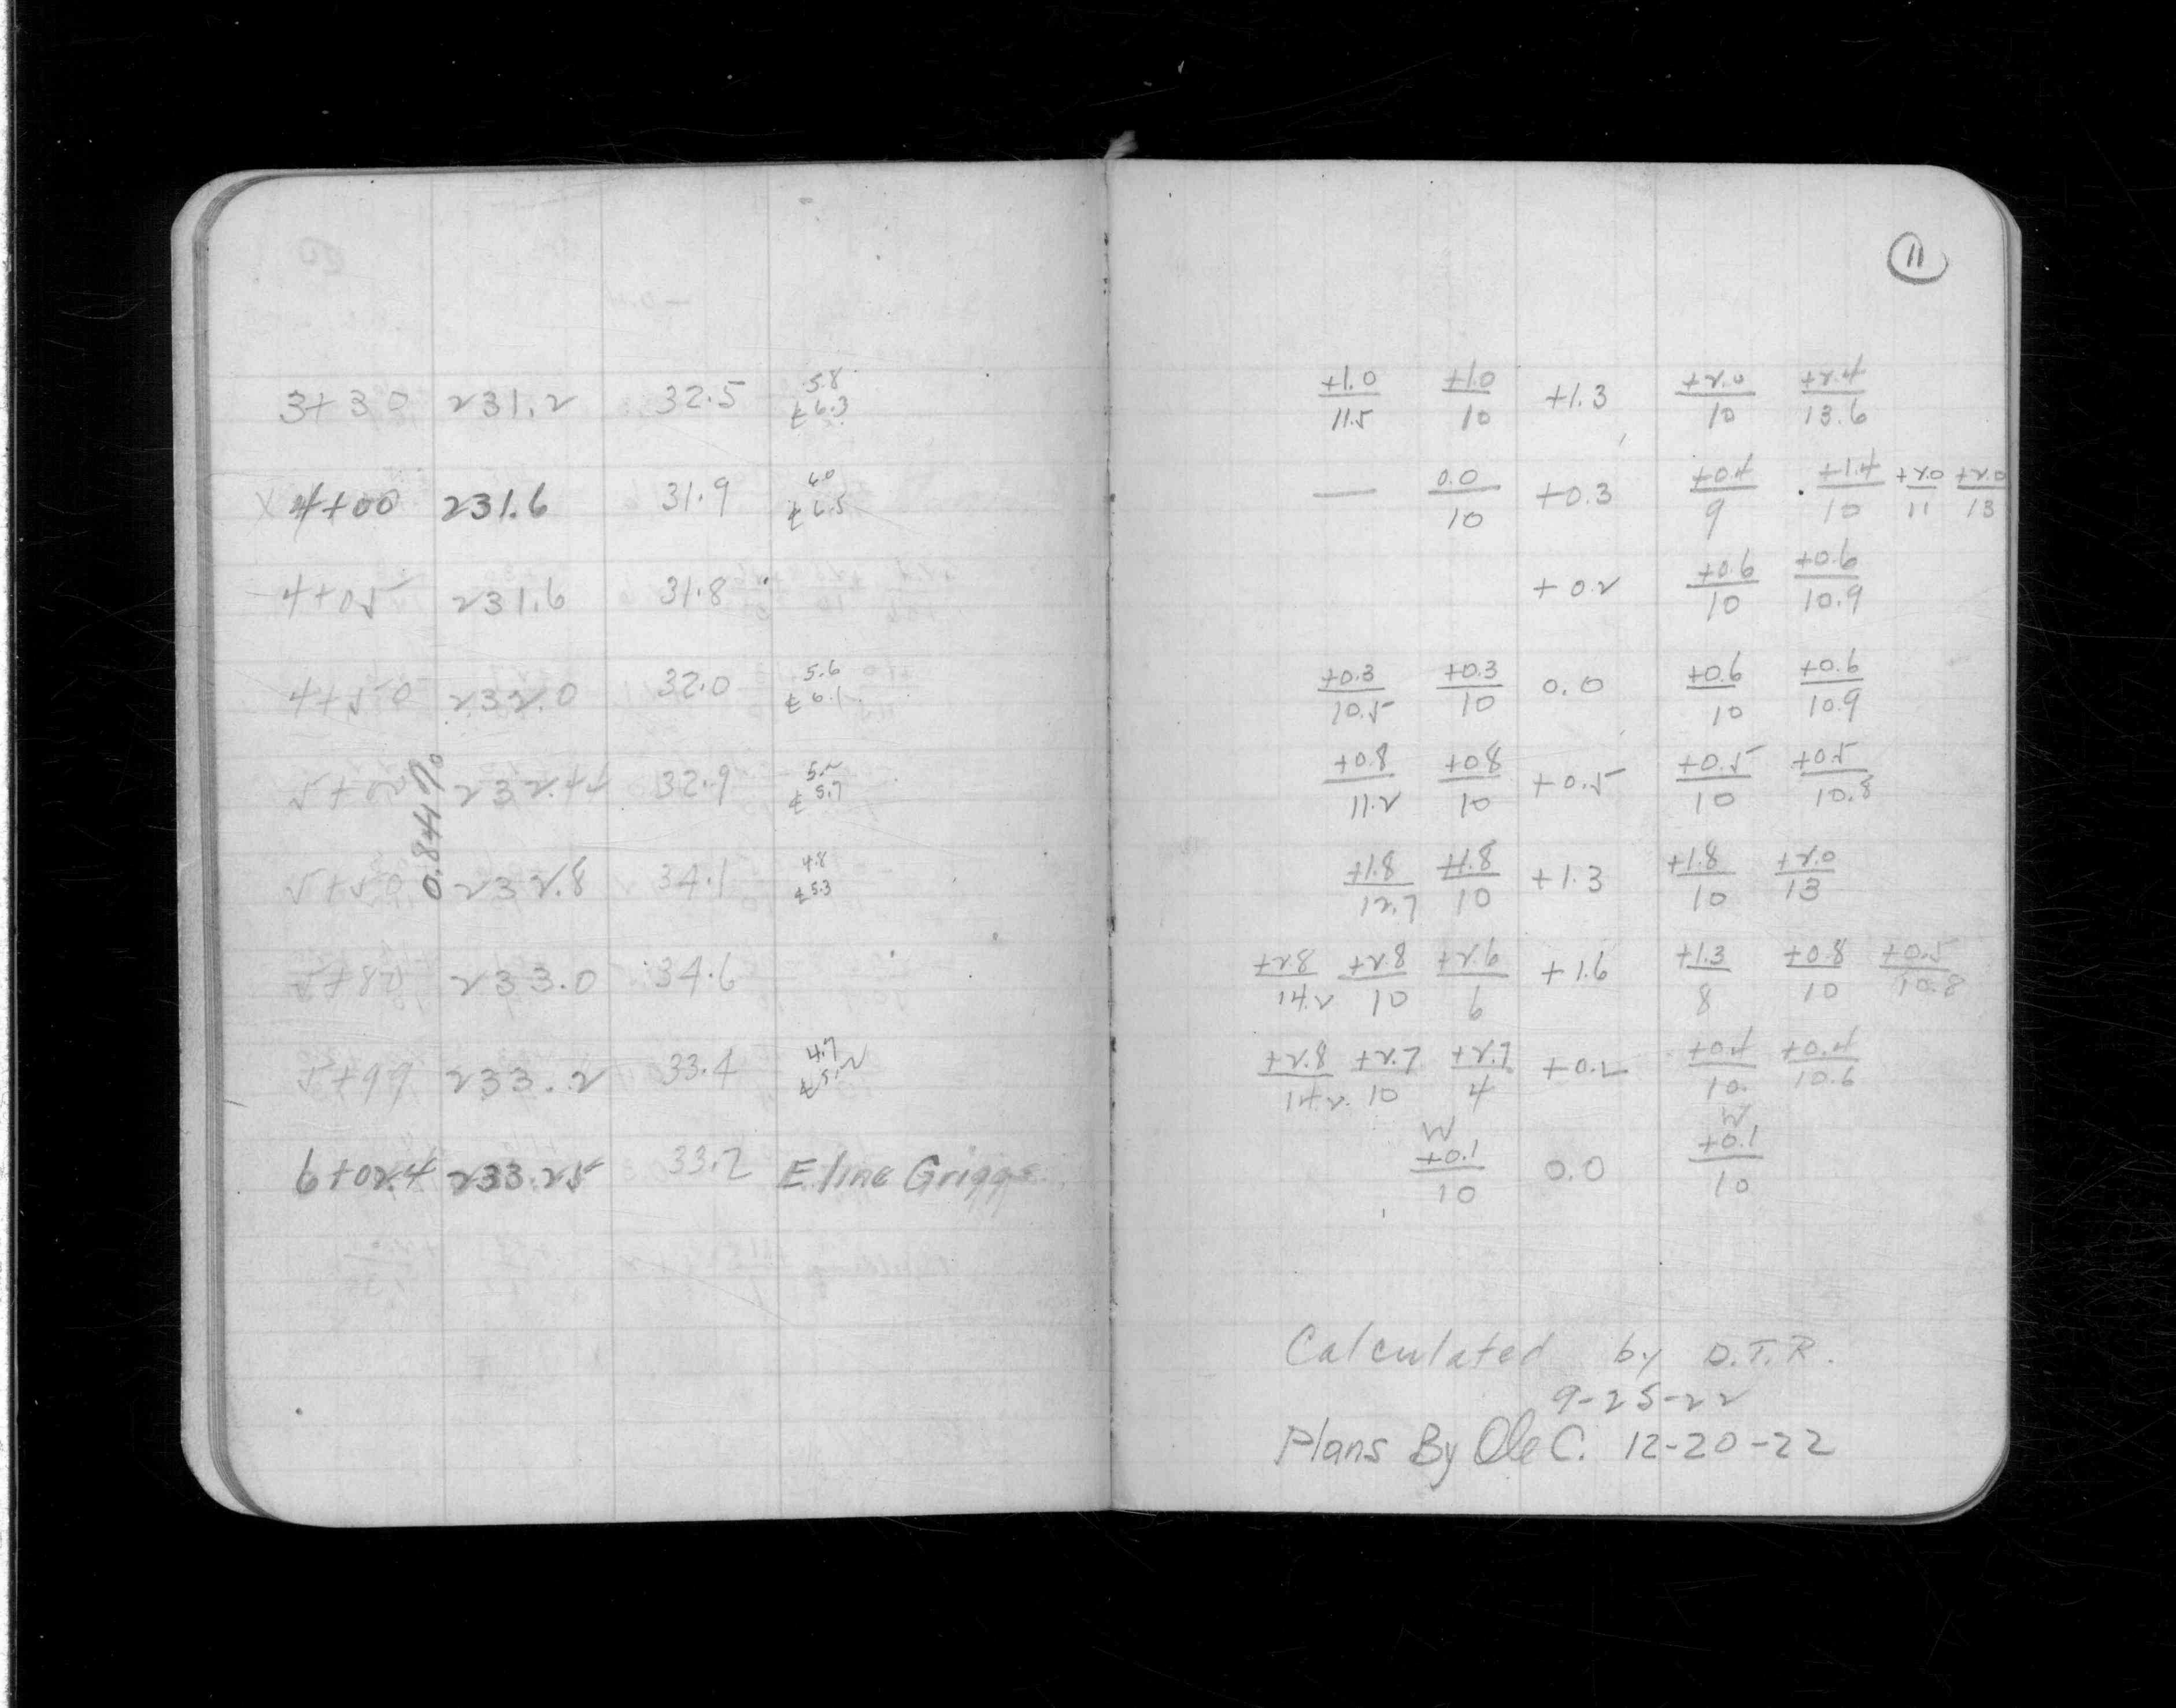 11
3+30 231.2 32.5 5.8 ℄ 6.3 +1.0/11.5 +1.0/10 +1.3 +2.0/10 +2.4/13.6
X 4+00 231.6 31.9 6.0 ℄ 6.5 — 0.0/10 +0.3 +0.4/9 +1.4/10 +2.0/11 +2.0/13
4+05 231.6 31.8 +0.2 +0.6/10 +0.6/10.9
4+50 232.0 32.0 5.6 ℄ 6.1 +0.3/10.5 +0.3/10 0.0 +0.6/10 +0.6/10.9
5+00 232.4 32.9 5.2 ℄ 5.7 +0.8/11.2 +0.8/10 +0.5 +0.5/10 +0.5/10.8
0.841%
5+50 232.8 34.1 4.8 ℄ 5.3 +1.8/12.7 +1.8/10 +1.3 +1.8/10 +2.0/13
5+80 233.0 34.6 +2.8/14.2 +2.8/10 +2.6/6 +1.6 +1.3/8 +0.8/10 +0.5/10.8
5+99 233.2 33.4 4.7 ℄ 5.2 +2.8/14.2 +2.7/10 +2.7/4 +0.2 +0.4/10 +0.4/10.6
W W
6+02.4 233.25 33.2 E line Griggs +0.1/10 0.0 +0.1/10
Calculated by D.T.R.
9-25-22
Plans By Ole C. 12-20-22